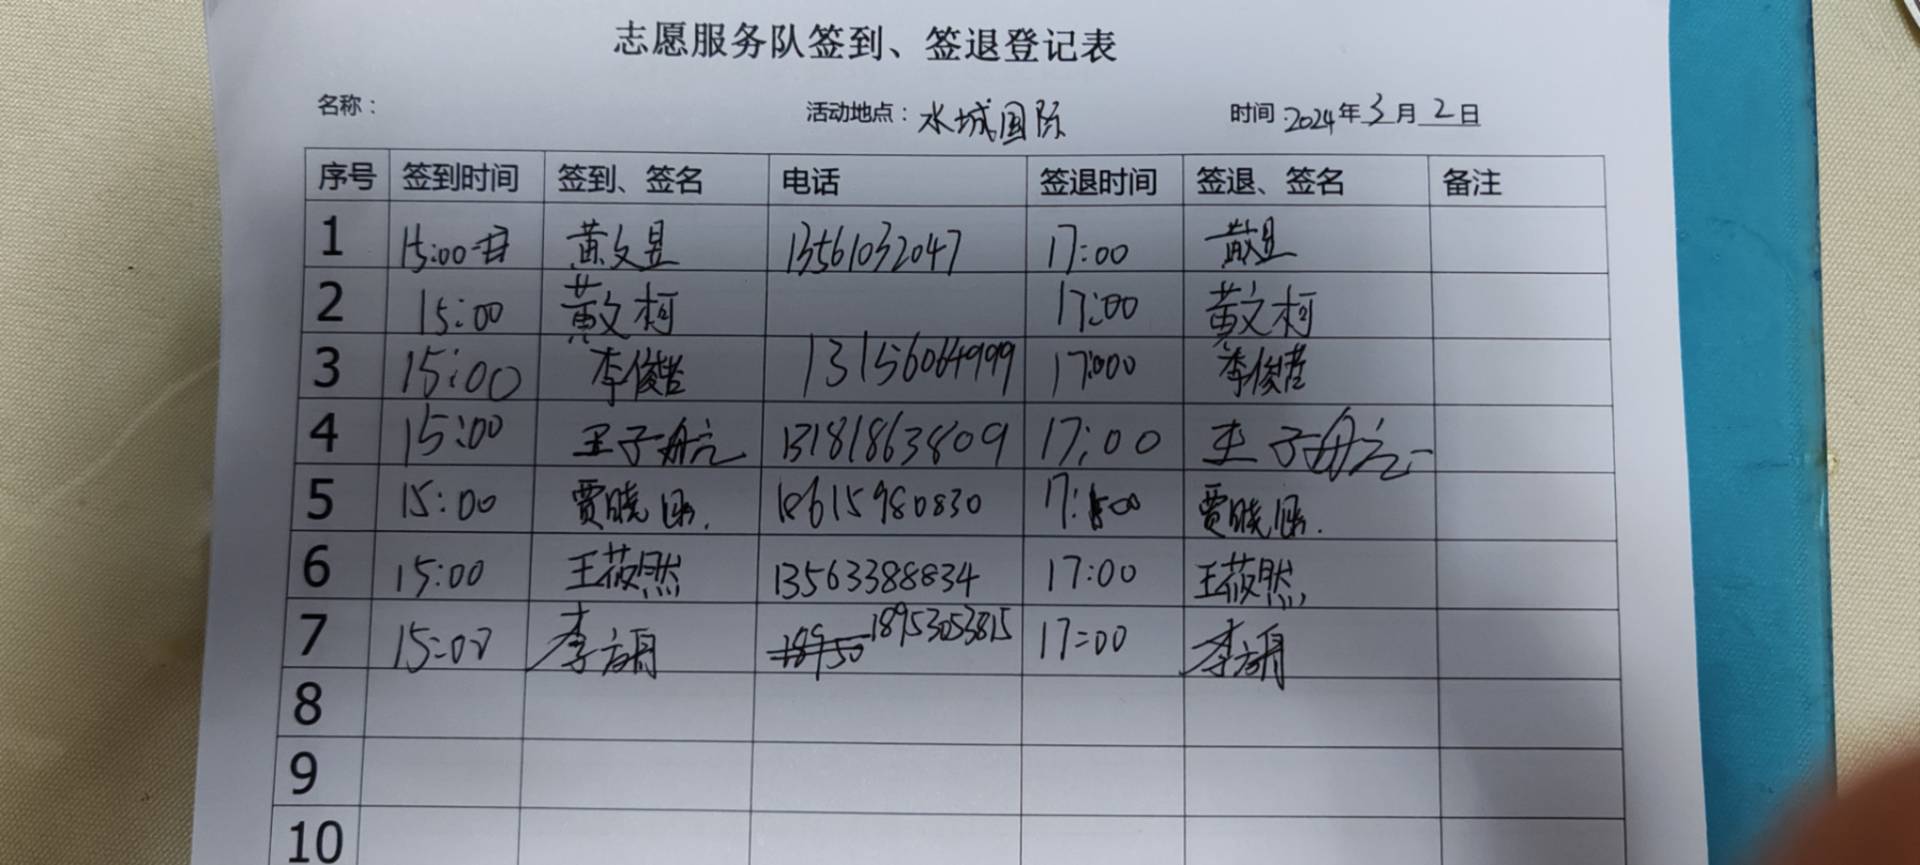 志愿服务队签到、签退登记表
名称： 活动地点：水城国际 时间：2024年3月2日
序号 签到时间 签到、签名 电话 签退时间 签退、签名 备注
1 15:00 黄文昱 13561032047 17:00
2 15:00 黄文柯 17:00 黄文柯
3 15:00 李俊哲 13156064999 17:00 李俊哲
4 15:00 王子航 13181863809 17:00 王子航
5 15:00 贾晓涵. 18615980830 17:00 贾晓涵.
6 15:00 王莜然 13563388834 17:00 王莜然
7 15:00 18950 18953053815 17:00
8
9
10